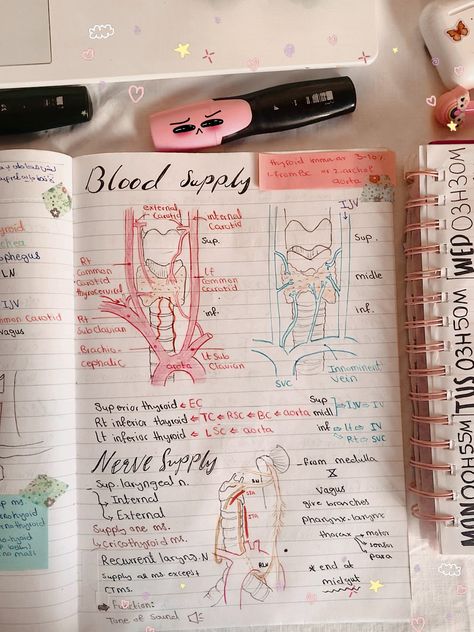 Blood Supply
thyroid ima var 3-10%
from BC or arch of
aorta
external
carotid
internal
carotid
Sup.
Rt
common
carotid
thyrocervical
Lt
common
carotid
Rt
Subclavian
inf.
Brachio-
cephalic
aorta
Lt Sub
clavian
IJV
Sup.
midle
inf.
SVC
Innominent
vein
Superior thyroid ← EC
Rt inferior thyroid ← TC ← RSC ← BC ← aorta
Lt inferior thyroid ← LSC ← aorta
Sup
midl
→ IJV → IV
inf → Lt → IV
Rt → SVC
Nerve Supply
Sup. laryngeal n.
Internal
External
Supply one ms.
↳ cricothyroid ms.
Recurrent laryng. N
Supply all ms except
CTms.
→ Function:
Tone of Sound
SLN
STA
ITA
RLN
-from medulla
X
Vagus
give branches
pharynx-larynx
thorax
motor
sensor
para
* end at
midgut
thyroid
trachea
esophegus
LN
IJV
common Carotid
vagus
MAN00H55M TUS 03H50M WED 03H30M